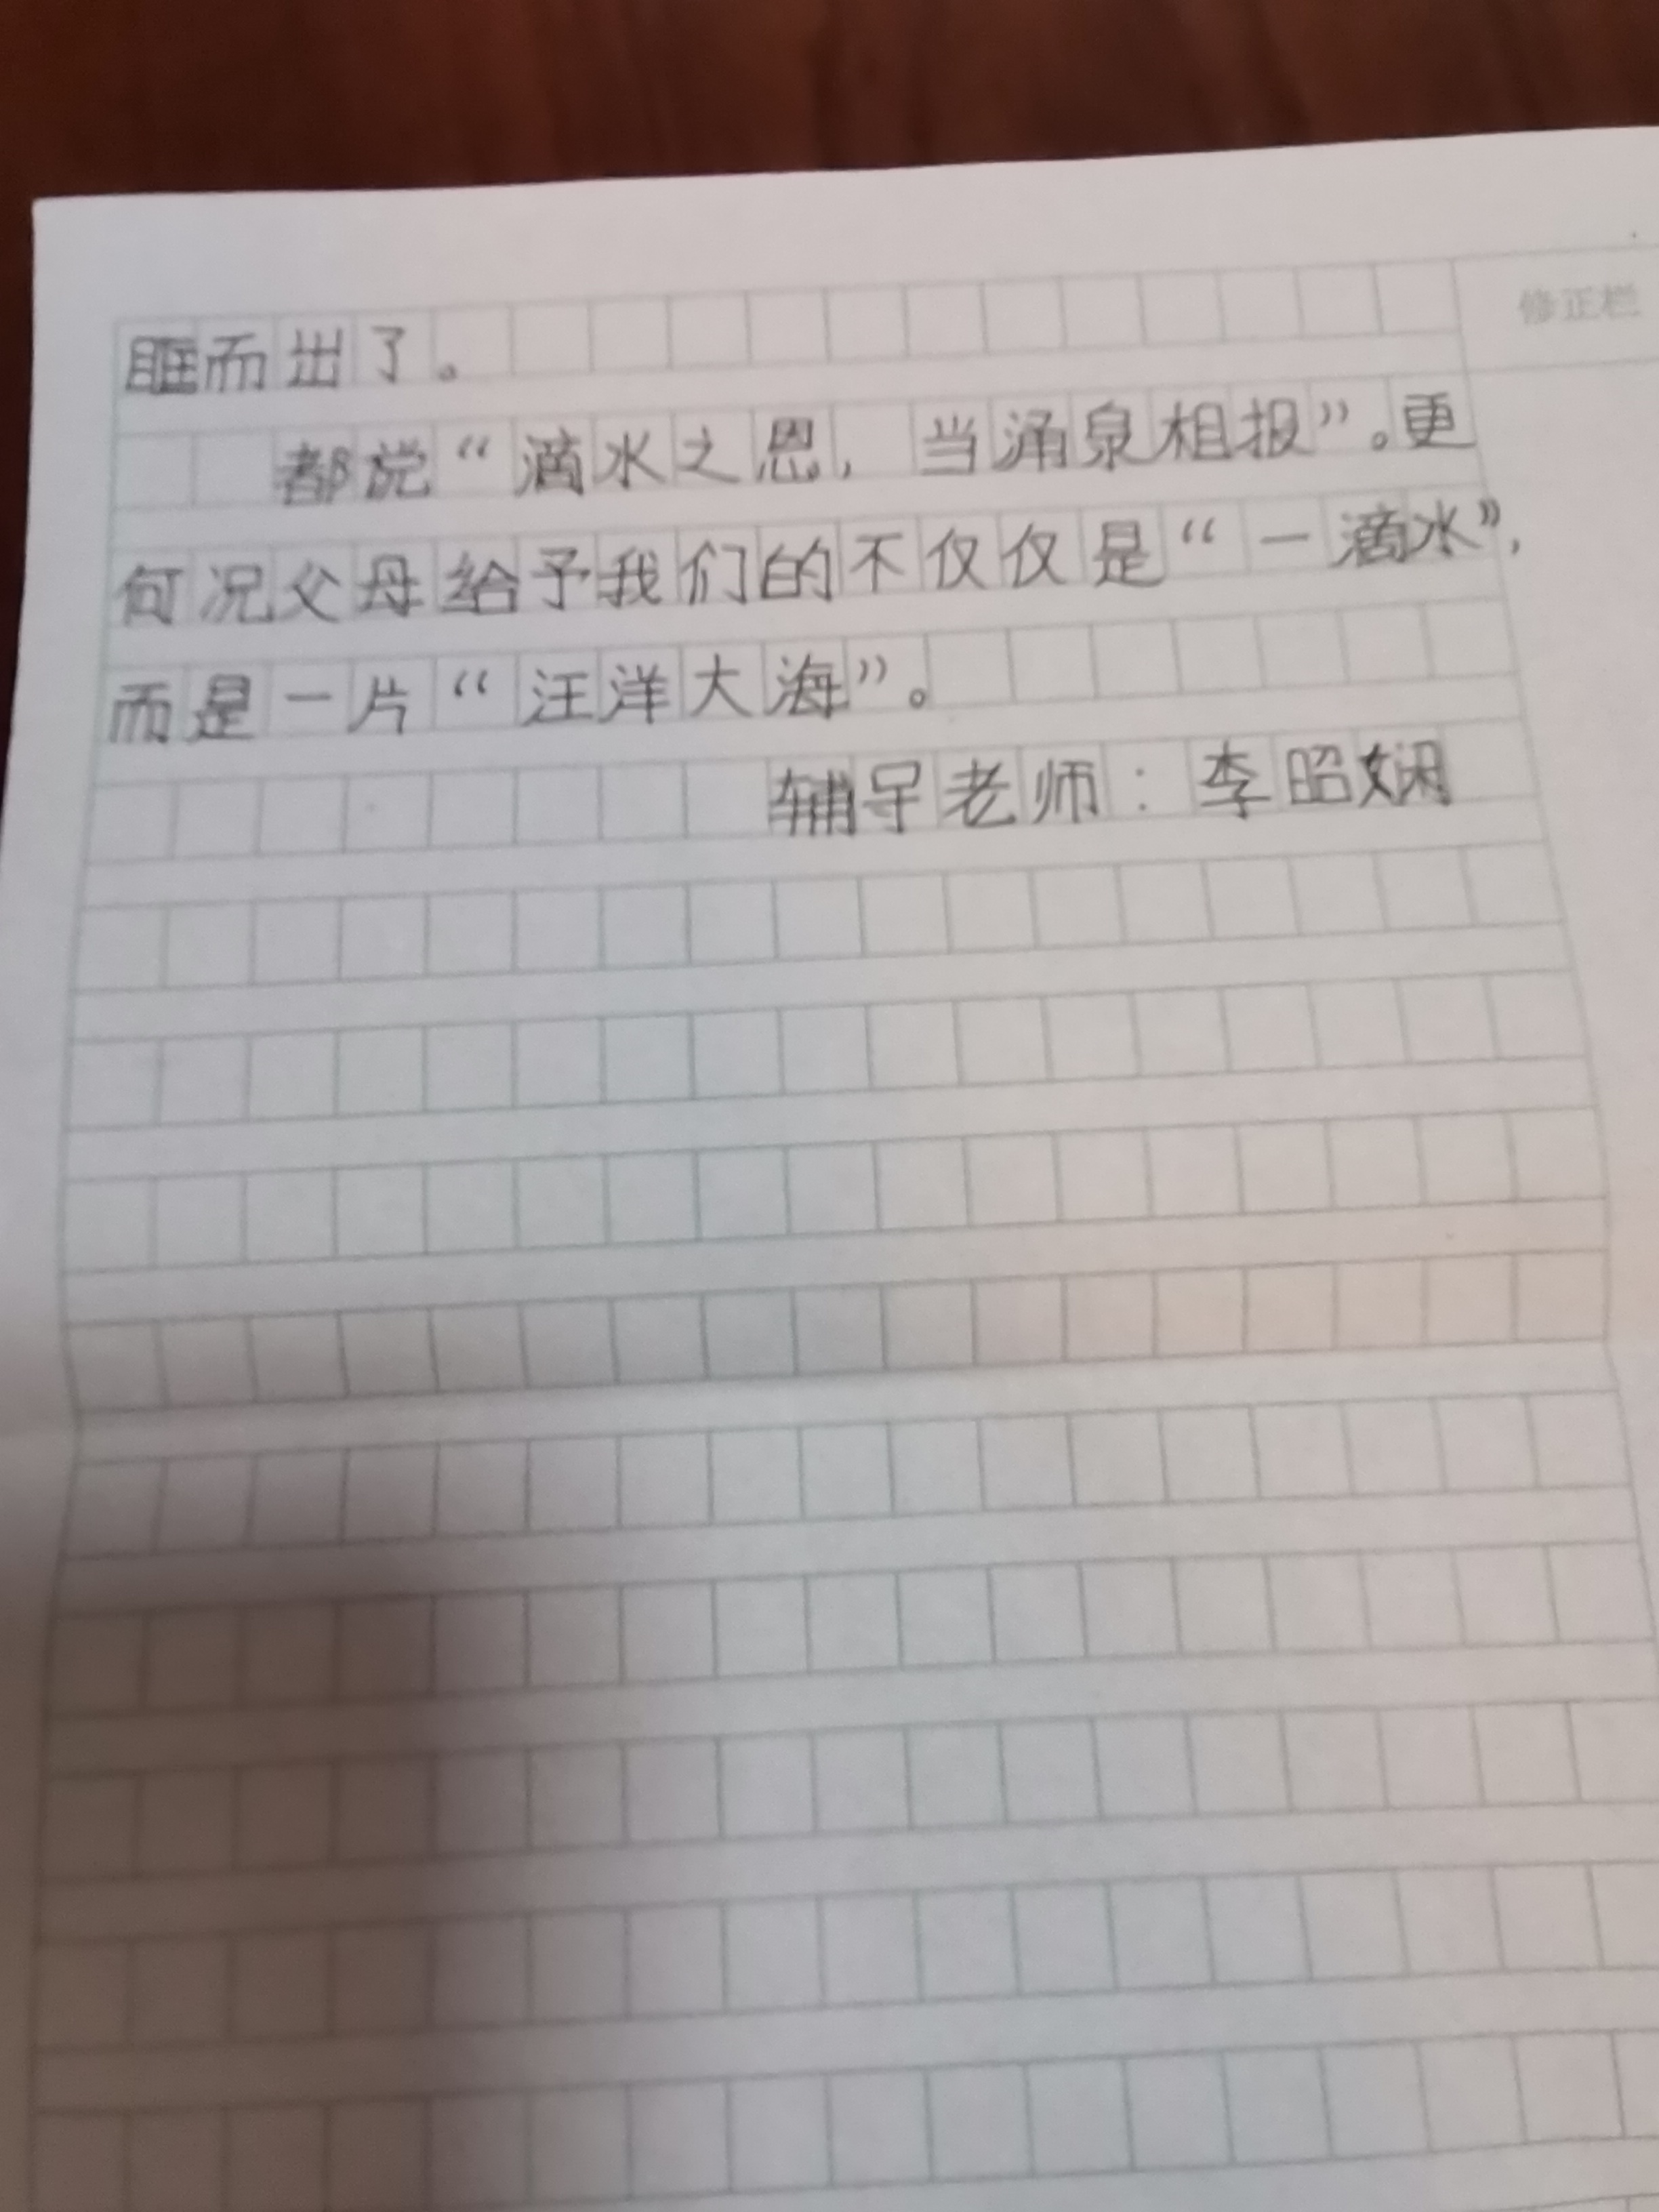 眶而出了。
修正栏
都说“滴水之恩,当涌泉相报”。更
何况父母给予我们的不仅仅是“一滴水”,
而是一片“汪洋大海”。
辅导老师:李昭娴